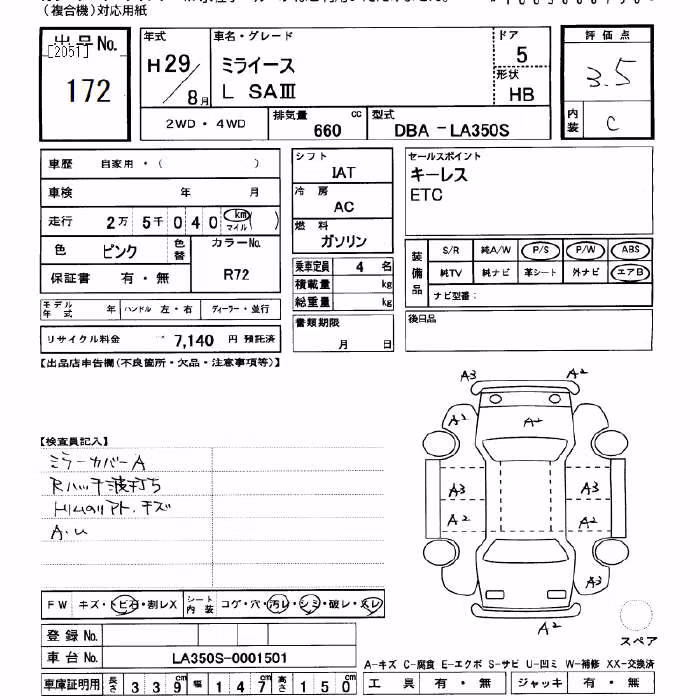 (複合機)対応用紙
出品No.
[2051]
172
年式
H29/8月
車名・グレード
ミライース
L SAⅢ
ドア
5
形状
HB
評価点
3.5
内装
C
2WD・4WD
排気量
660 cc
型式
DBA-LA350S
車歴 自家用・( )
車検 年 月
走行 2万 5千 0 4 0 km マイル ( )
色 ピンク 色替
カラーNo.
R72
保証書 有・無
モデル年式 年 ハンドル 左・右 ディーラー・並行
リサイクル料金 7,140 円 預託済
シフト
IAT
冷房
AC
燃料
ガソリン
乗車定員 4 名
積載量 kg
総重量 kg
書類期限
月 日
セールスポイント
キーレス
ETC
装備品
S/R 純A/W P/S P/W ABS
純TV 純ナビ 革シート 外ナビ エアB
ナビ型番:
後日品
【出品店申告欄(不良箇所・欠品・注意事項等)】
【検査員記入】
ミラーカバーA
Rハッチ波打ち
トリムのりアト.キズ
A.U
A3 A2
A2 A2
A3 A3
A2 A2
A3
A2
スペア
FW キズ・トビ石・割レX
シート内装 コゲ・穴・汚レ・シミ・破レ・スレ
登録No.
車台No. LA350S-0001501
車庫証明用 長さ 339 幅 147 高さ 150
A-キズ C-腐食 E-エクボ S-サビ U-凹ミ W-補修 XX-交換済
工具 有・無 ジャッキ 有・無